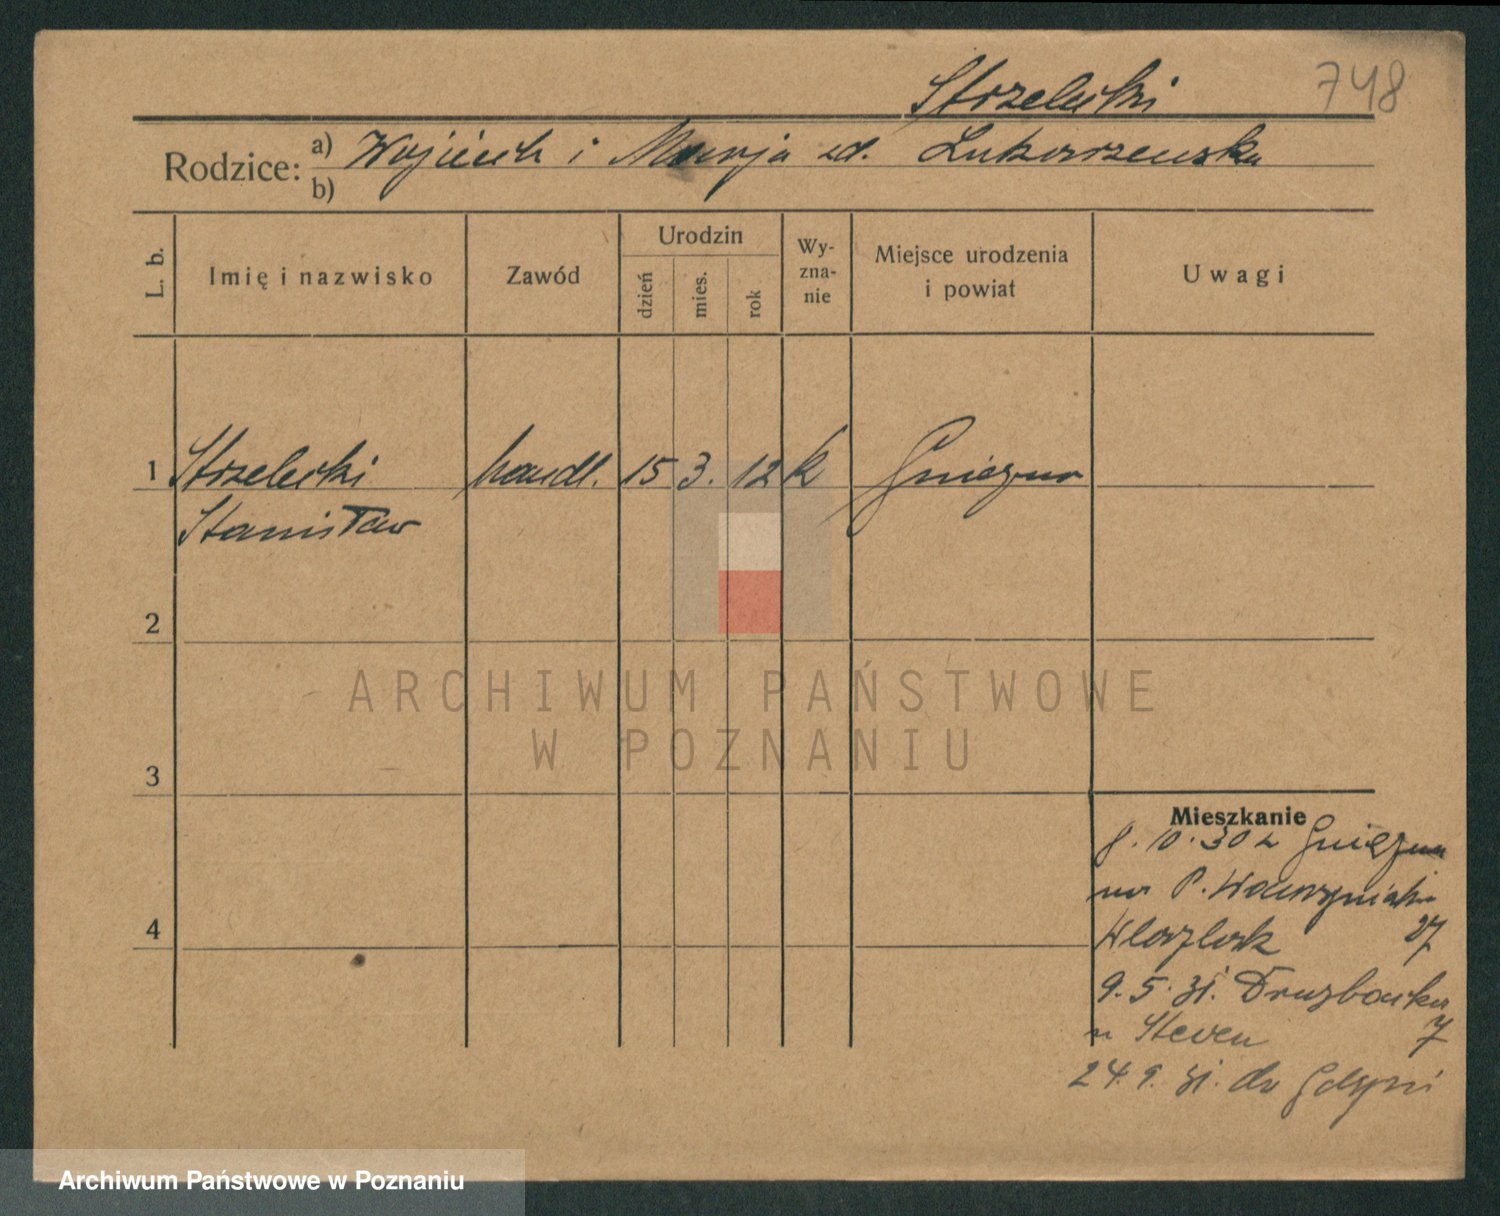 Strzelecki 748
Rodzice: a) Wojciech i Marja zd. Łukaszewska
b)
L. b. Imię i nazwisko Zawód Urodzin dzień mies. rok Wy-zna-nie Miejsce urodzenia i powiat Uwagi
1 Strzelecki handl. 15 3. 12 k Gniezno
Stanisław
2
ARCHIWUM PAŃSTWOWE
W POZNANIU
3
Mieszkanie
8. 10. 30 z Gniezna
na P. Wawrzyniaka
27
4
9. 5. 31. Drużbackiej
u Steven 7
24. 9. 31. do Gdyni
Archiwum Państwowe w Poznaniu